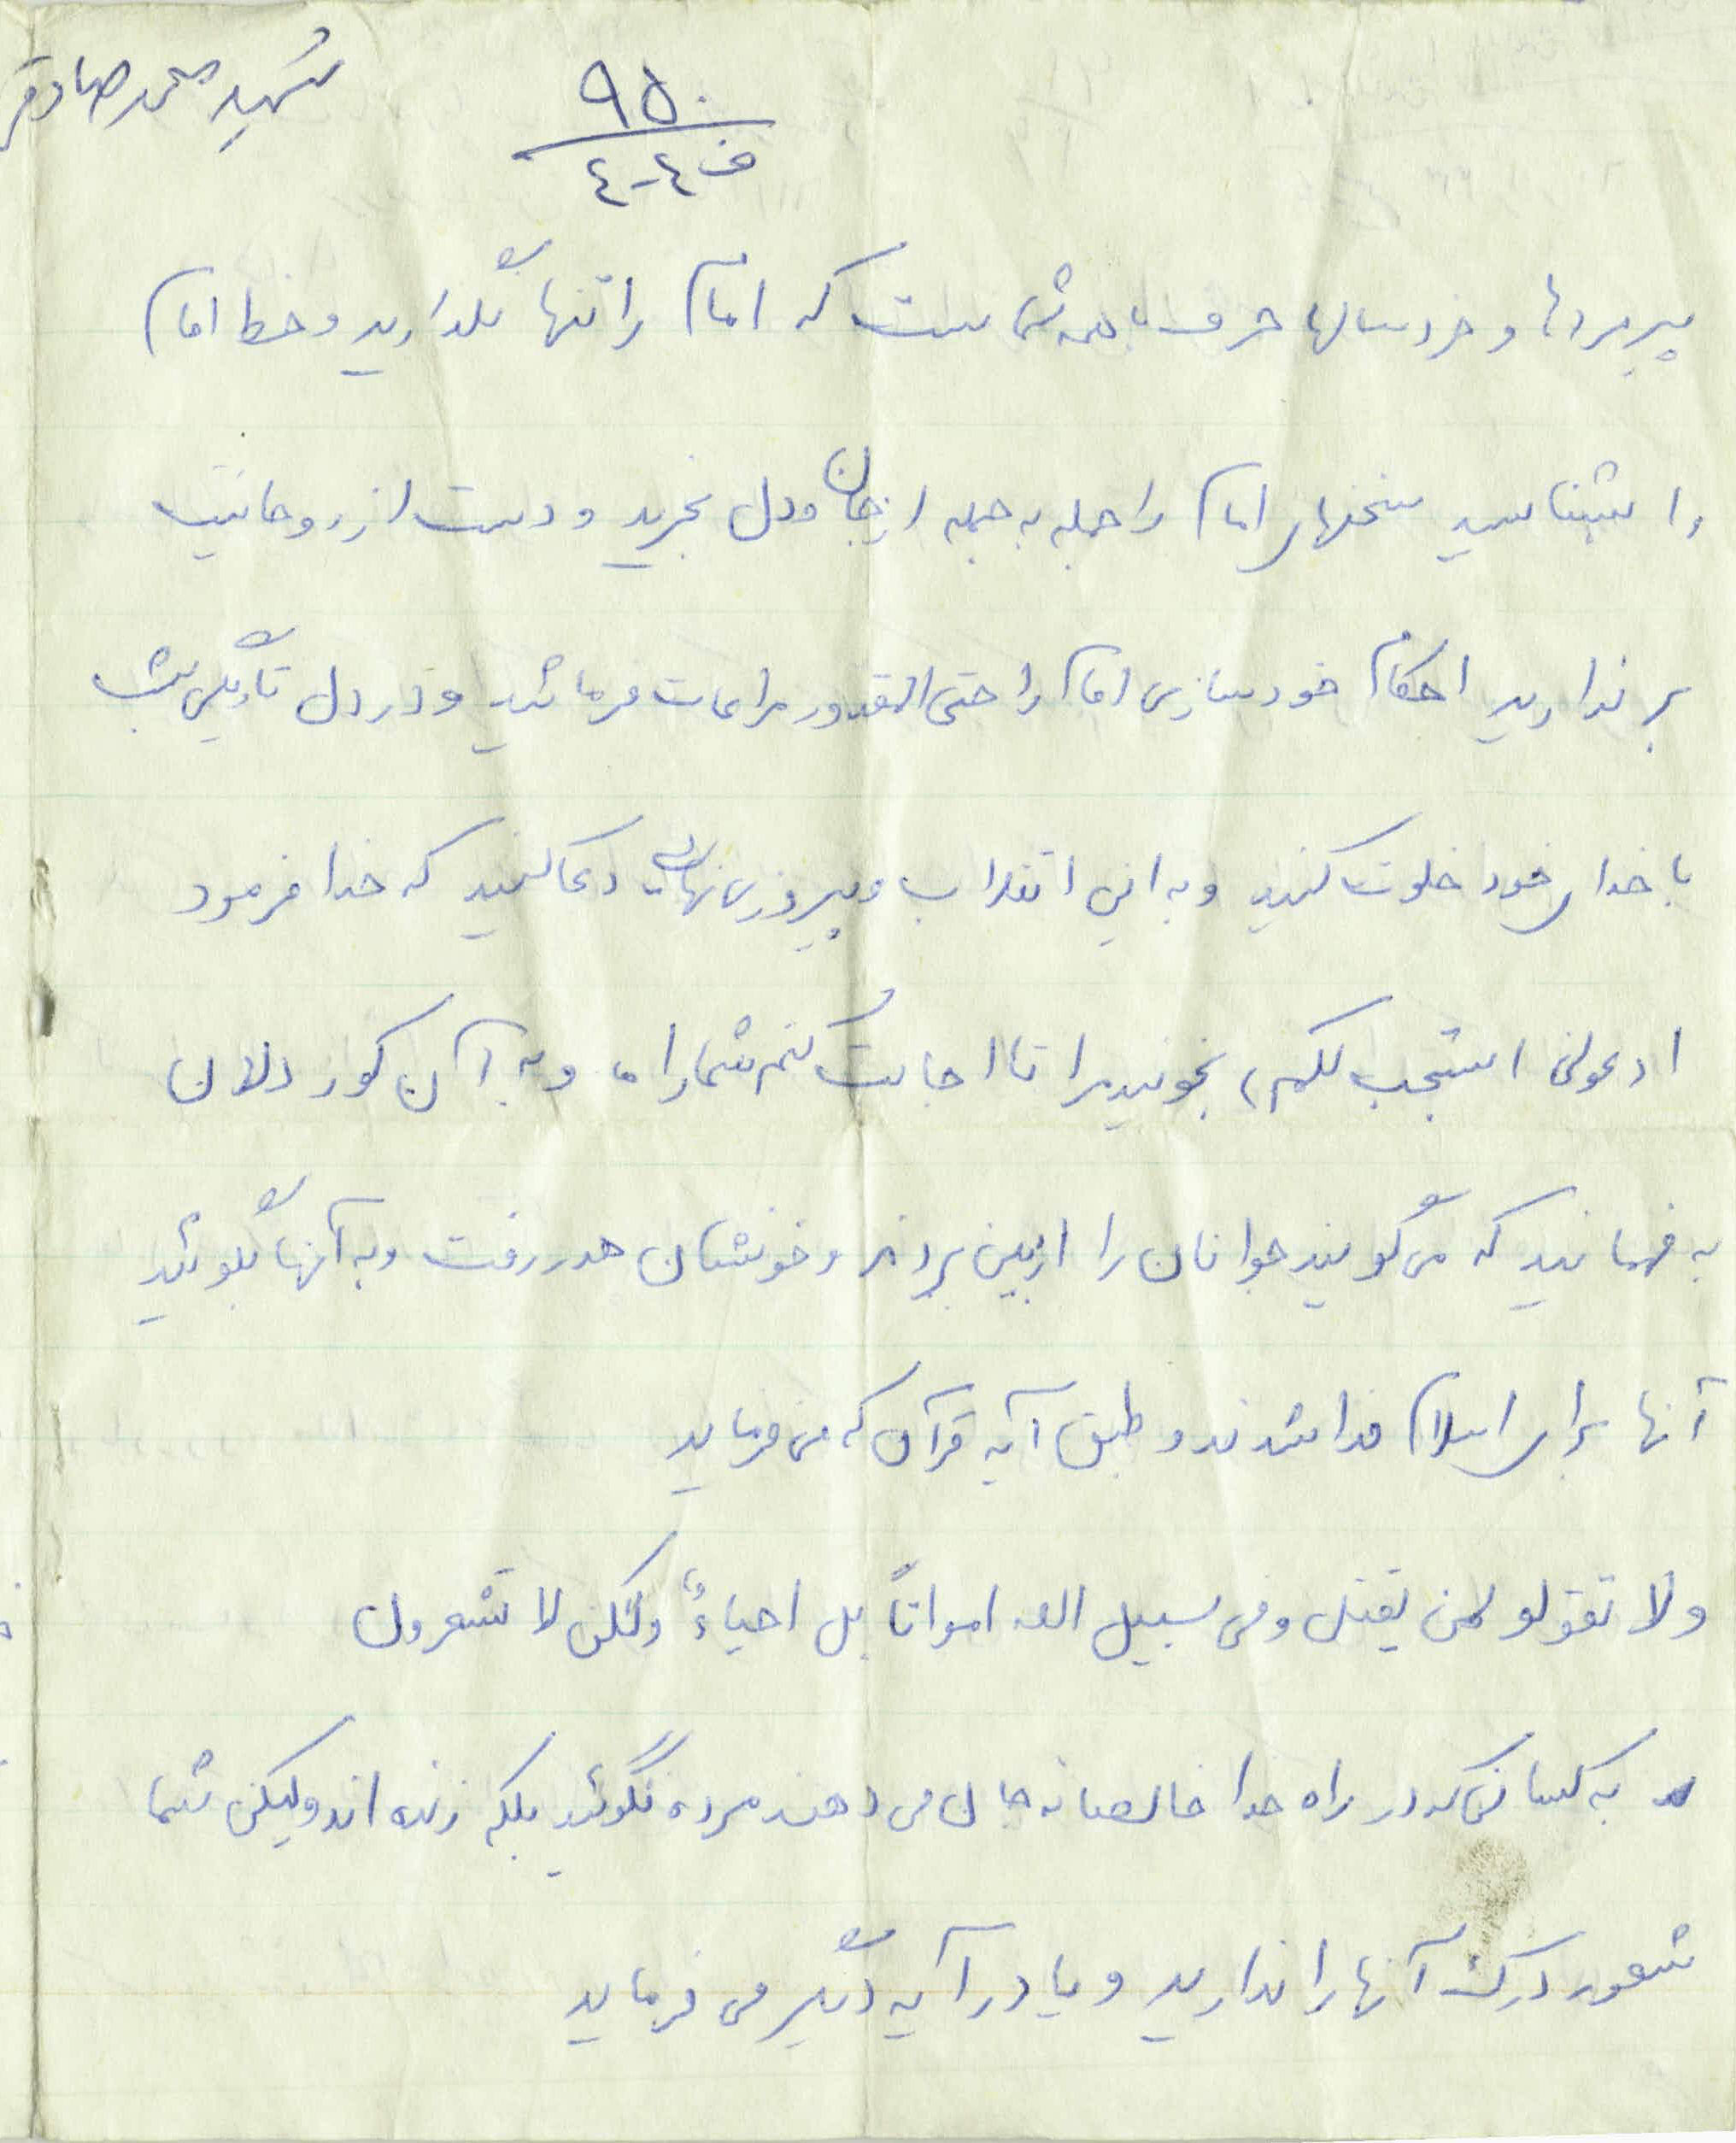 شهید محمد صادق
۹۵۰
ف ٤-٤
پیرمردها و خردسالها حرف با همه شماست که امام را تنها نگذارید و خط امام
را بشناسید سخنهای امام را جمله به جمله از جان و دل بخرید و دست از روحانیت
بر ندارید احکام خودسازی امام را حتی القدور مراعات فرمائید و در دل تاریکی شب
با خدای خود خلوت کنید و به این انقلاب و پیروزی نهایی دعا کنید که خدا فرمود
ادعونی استجب لکم، بخونید مرا تا اجابت کنم شما را، و به آن کور دلان
به فهمانید که می گویند جوانان را از بین بردند و خونشان هدر رفت و به آنها بگوئید
آنها برای اسلام فدا شدند و طبق آیه قرآن که می فرماید
ولا تقولو لمن یقتل و فی سبیل الله امواتاً بل احیاءٌ ولکن لا تشعرون
به کسانی که در راه خدا خالصانه جان می دهند مرده نگوئید بلکه زنده اند ولیکن شما
شعور درک آنها را ندارید و یا در آیه دیگر می فرماید